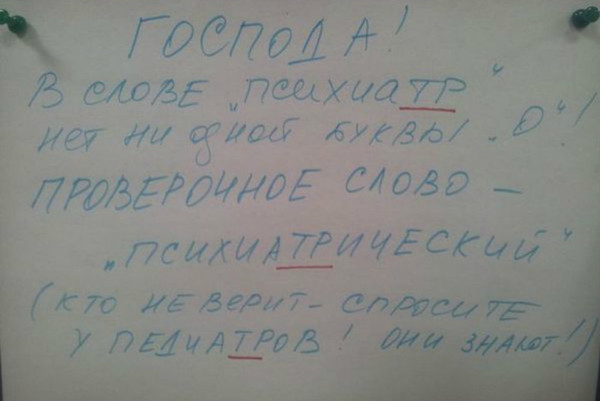 ГОСПОДА!
В СЛОВЕ „ПСИХИАТР“
НЕТ НИ ОДНОЙ БУКВЫ „О“!
ПРОВЕРОЧНОЕ СЛОВО –
„ПСИХИАТРИЧЕСКИЙ“
(КТО НЕ ВЕРИТ – СПРОСИТЕ
У ПЕДИАТРОВ! ОНИ ЗНАЮТ!)